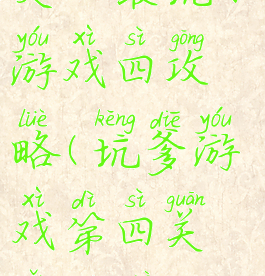 yóu xì sì gōng
游戏四攻
lüè kēng diē yóu
略(坑爹游
xì dì sì guān
戏第四关